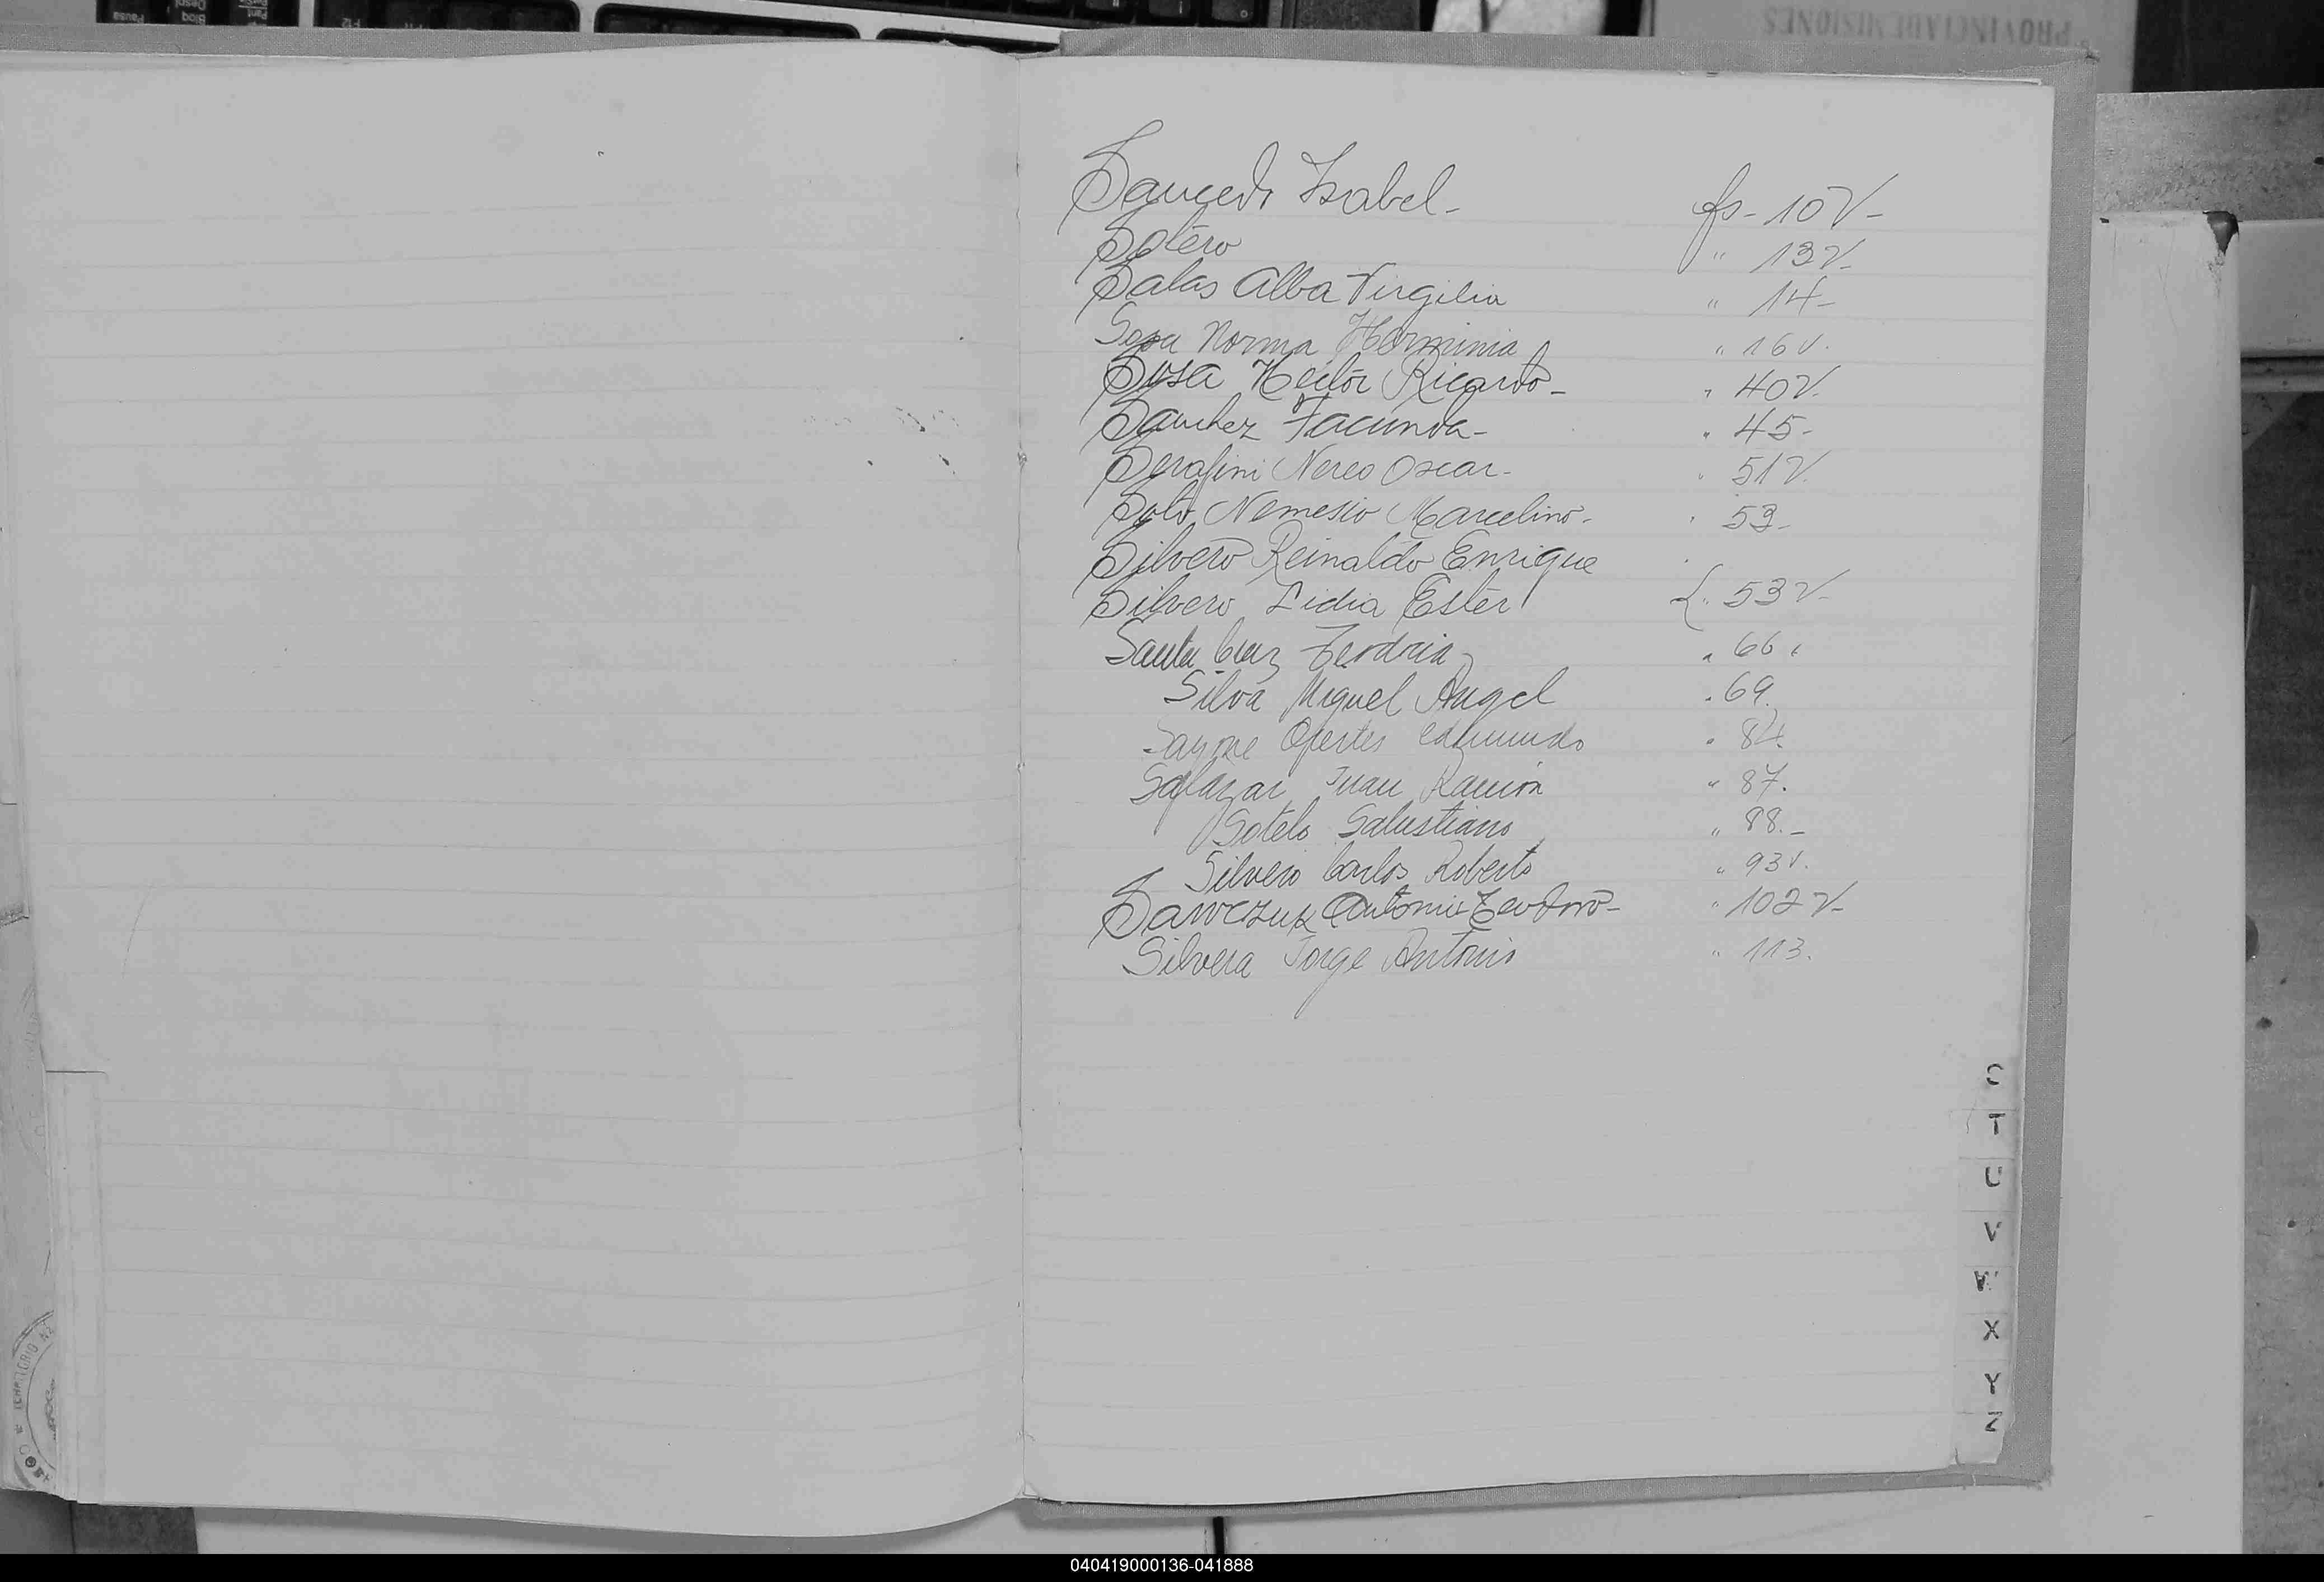 PROVINCIA DE MISIONES
Saucedo Isabel- fs- 10V-
Sotero " 13V-
Salas Alba Virgilia " 14-
Sosa Norma Herminia " 16v.
Sosa Hector Ricardo- " 40V.
Sanchez Facunda- " 45-
Serafini Nereo Oscar- " 51V.
Soto Nemesio Marcelino- " 53-
Silvero Reinaldo Enrique
Silvero Lidia Ester { " 53V-
Santa Cruz " 66
Silva Miguel Angel " 69.
Edmundo " 84.
Salazar Juan Ramón " 87.
Sotelo Salustiano " 88.-
Silvero Carlos Roberto " 93v.
Sawczuk Antonio Teodoro- " 102V-
Silvera Jorge Antonio " 113.
S
T
U
V
W
X
Y
Z
040419000136-041888